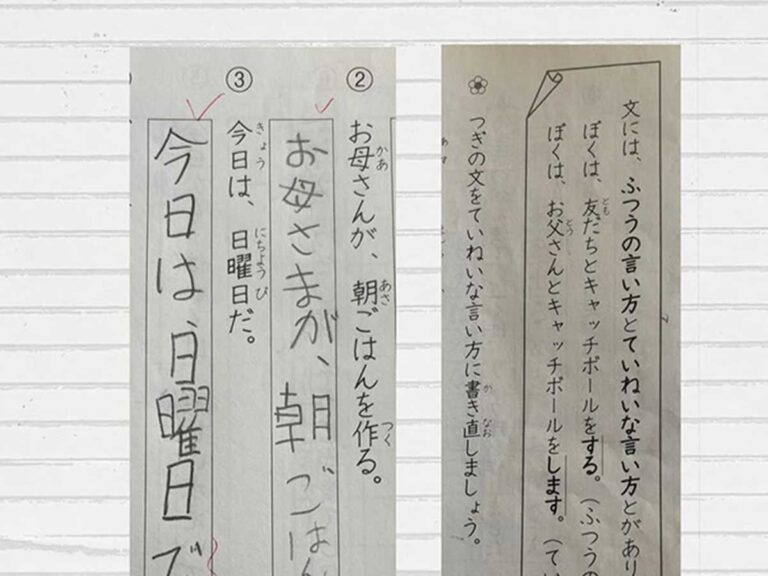 文には、ふつうの言い方とていねいな言い方とがあり
ぼくは、友だちとキャッチボールをする。(ふつうの
ぼくは、お父さんとキャッチボールをします。(てい
つぎの文をていねいな言い方に書き直しましょう。
② お母さんが、朝ごはんを作る。
お母さまが、朝ごはん
③ 今日は、日曜日だ。
今日は、日曜日で